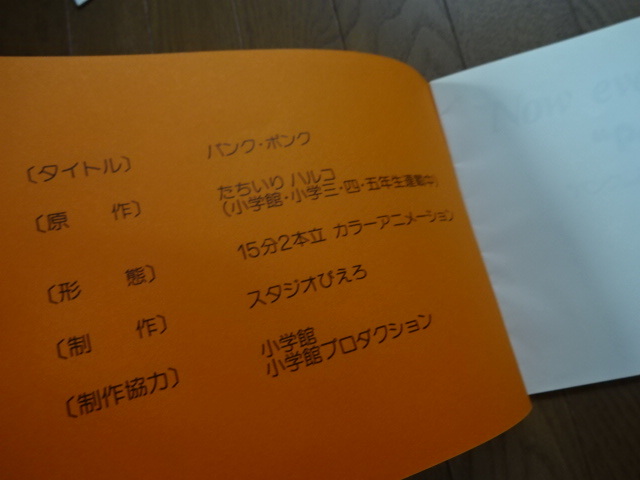 〔タイトル〕 パンク・ポンク
〔原　作〕 たちいり ハルコ
(小学館・小学三・四・五年生連載中)
〔形　態〕 15分2本立 カラーアニメーション
〔制　作〕 スタジオぴえろ
〔制作協力〕 小学館
小学館プロダクション